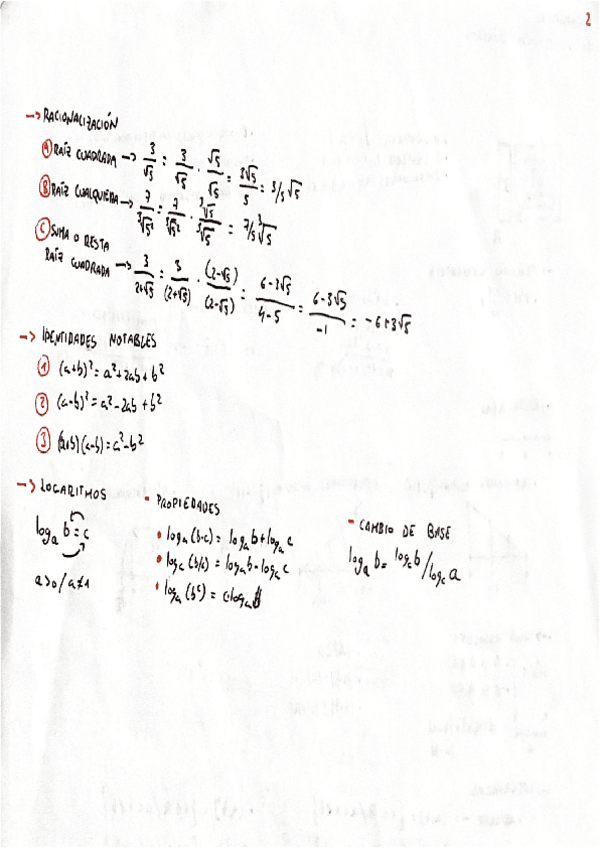 2
→ RACIONALIZACIÓN
Ⓐ RAÍZ CUADRADA → 3/√5 = 3/√5 · √5/√5 = 3√5/5 = 3/5 √5
Ⓑ RAÍZ CUALQUIERA → 7/∛5² = 7/∛5² · ∛5/∛5 = 7/5 ∛5
Ⓒ SUMA O RESTA
RAÍZ CUADRADA → 3/2+√5 = 3/(2+√5) · (2-√5)/(2-√5) = 6-3√5/4-5 = 6-3√5/-1 = -6+3√5
→ IDENTIDADES NOTABLES
① (a+b)² = a²+2ab+b²
② (a-b)² = a²-2ab+b²
③ (a+b)(a-b) = a²-b²
→ LOGARITMOS
logₐ b = c
a>0/a≠1
- PROPIEDADES
• logₐ (b·c) = logₐ b + logₐ c
• logₐ (b/c) = logₐ b - logₐ c
• logₐ (bᶜ) = c·logₐ b
- CAMBIO DE BASE
logₐ b = log꜀ b / log꜀ a